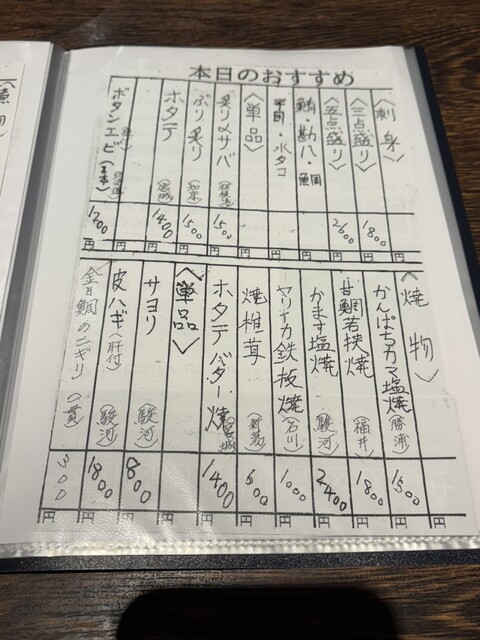 本日のおすすめ
〈刺身〉
〈三点盛り〉 1800円
〈五点盛り〉 2600円
鮪・勘八・鯛
平目・水タコ
〈単品〉
炙り〆サバ 1500円
ぶり炙り 1500円
ホタテ (宮城) 1400円
ボタンエビ 1200円
〈焼物〉
かんぱちカマ塩焼 (勝浦) 1500円
甘鯛若狭焼 (福井) 1800円
かます塩焼 (駿河) 2400円
ヤリイカ鉄板焼 (石川) 1000円
焼椎茸 600円
ホタテバター焼 (宮城) 1400円
〈単品〉
サヨリ (駿河) 800円
皮ハギ(肝付) (駿河) 1800円
金目鯛のニギリ(一貫) 300円